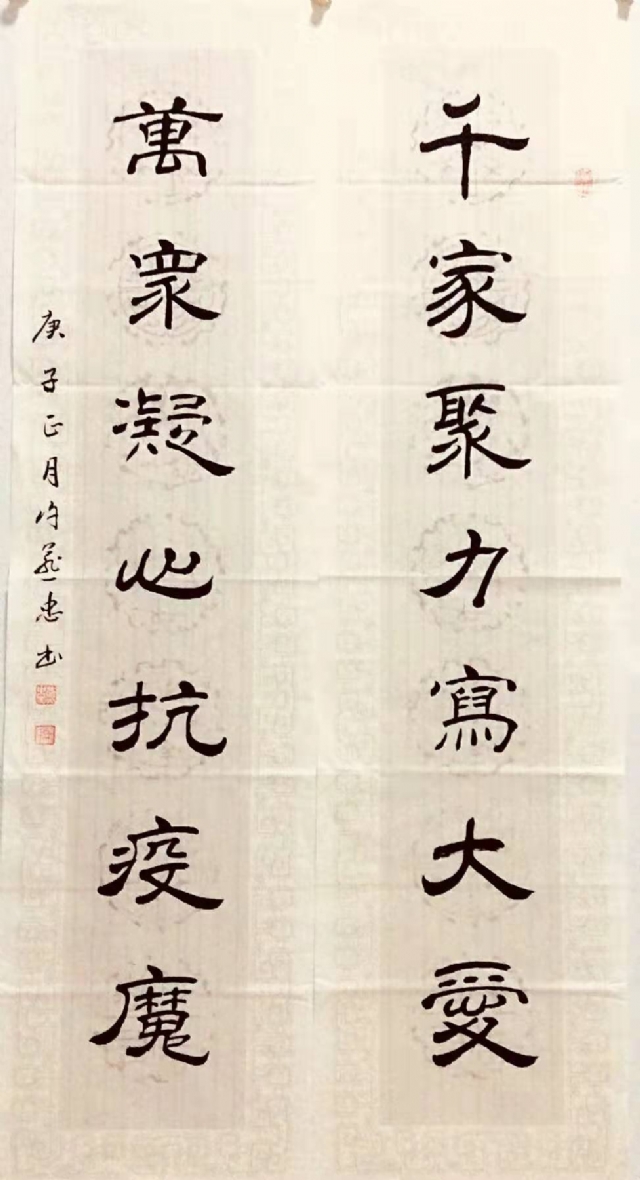 千家聚力寫大愛
萬眾凝心抗疫魔
庚子正月 忠書